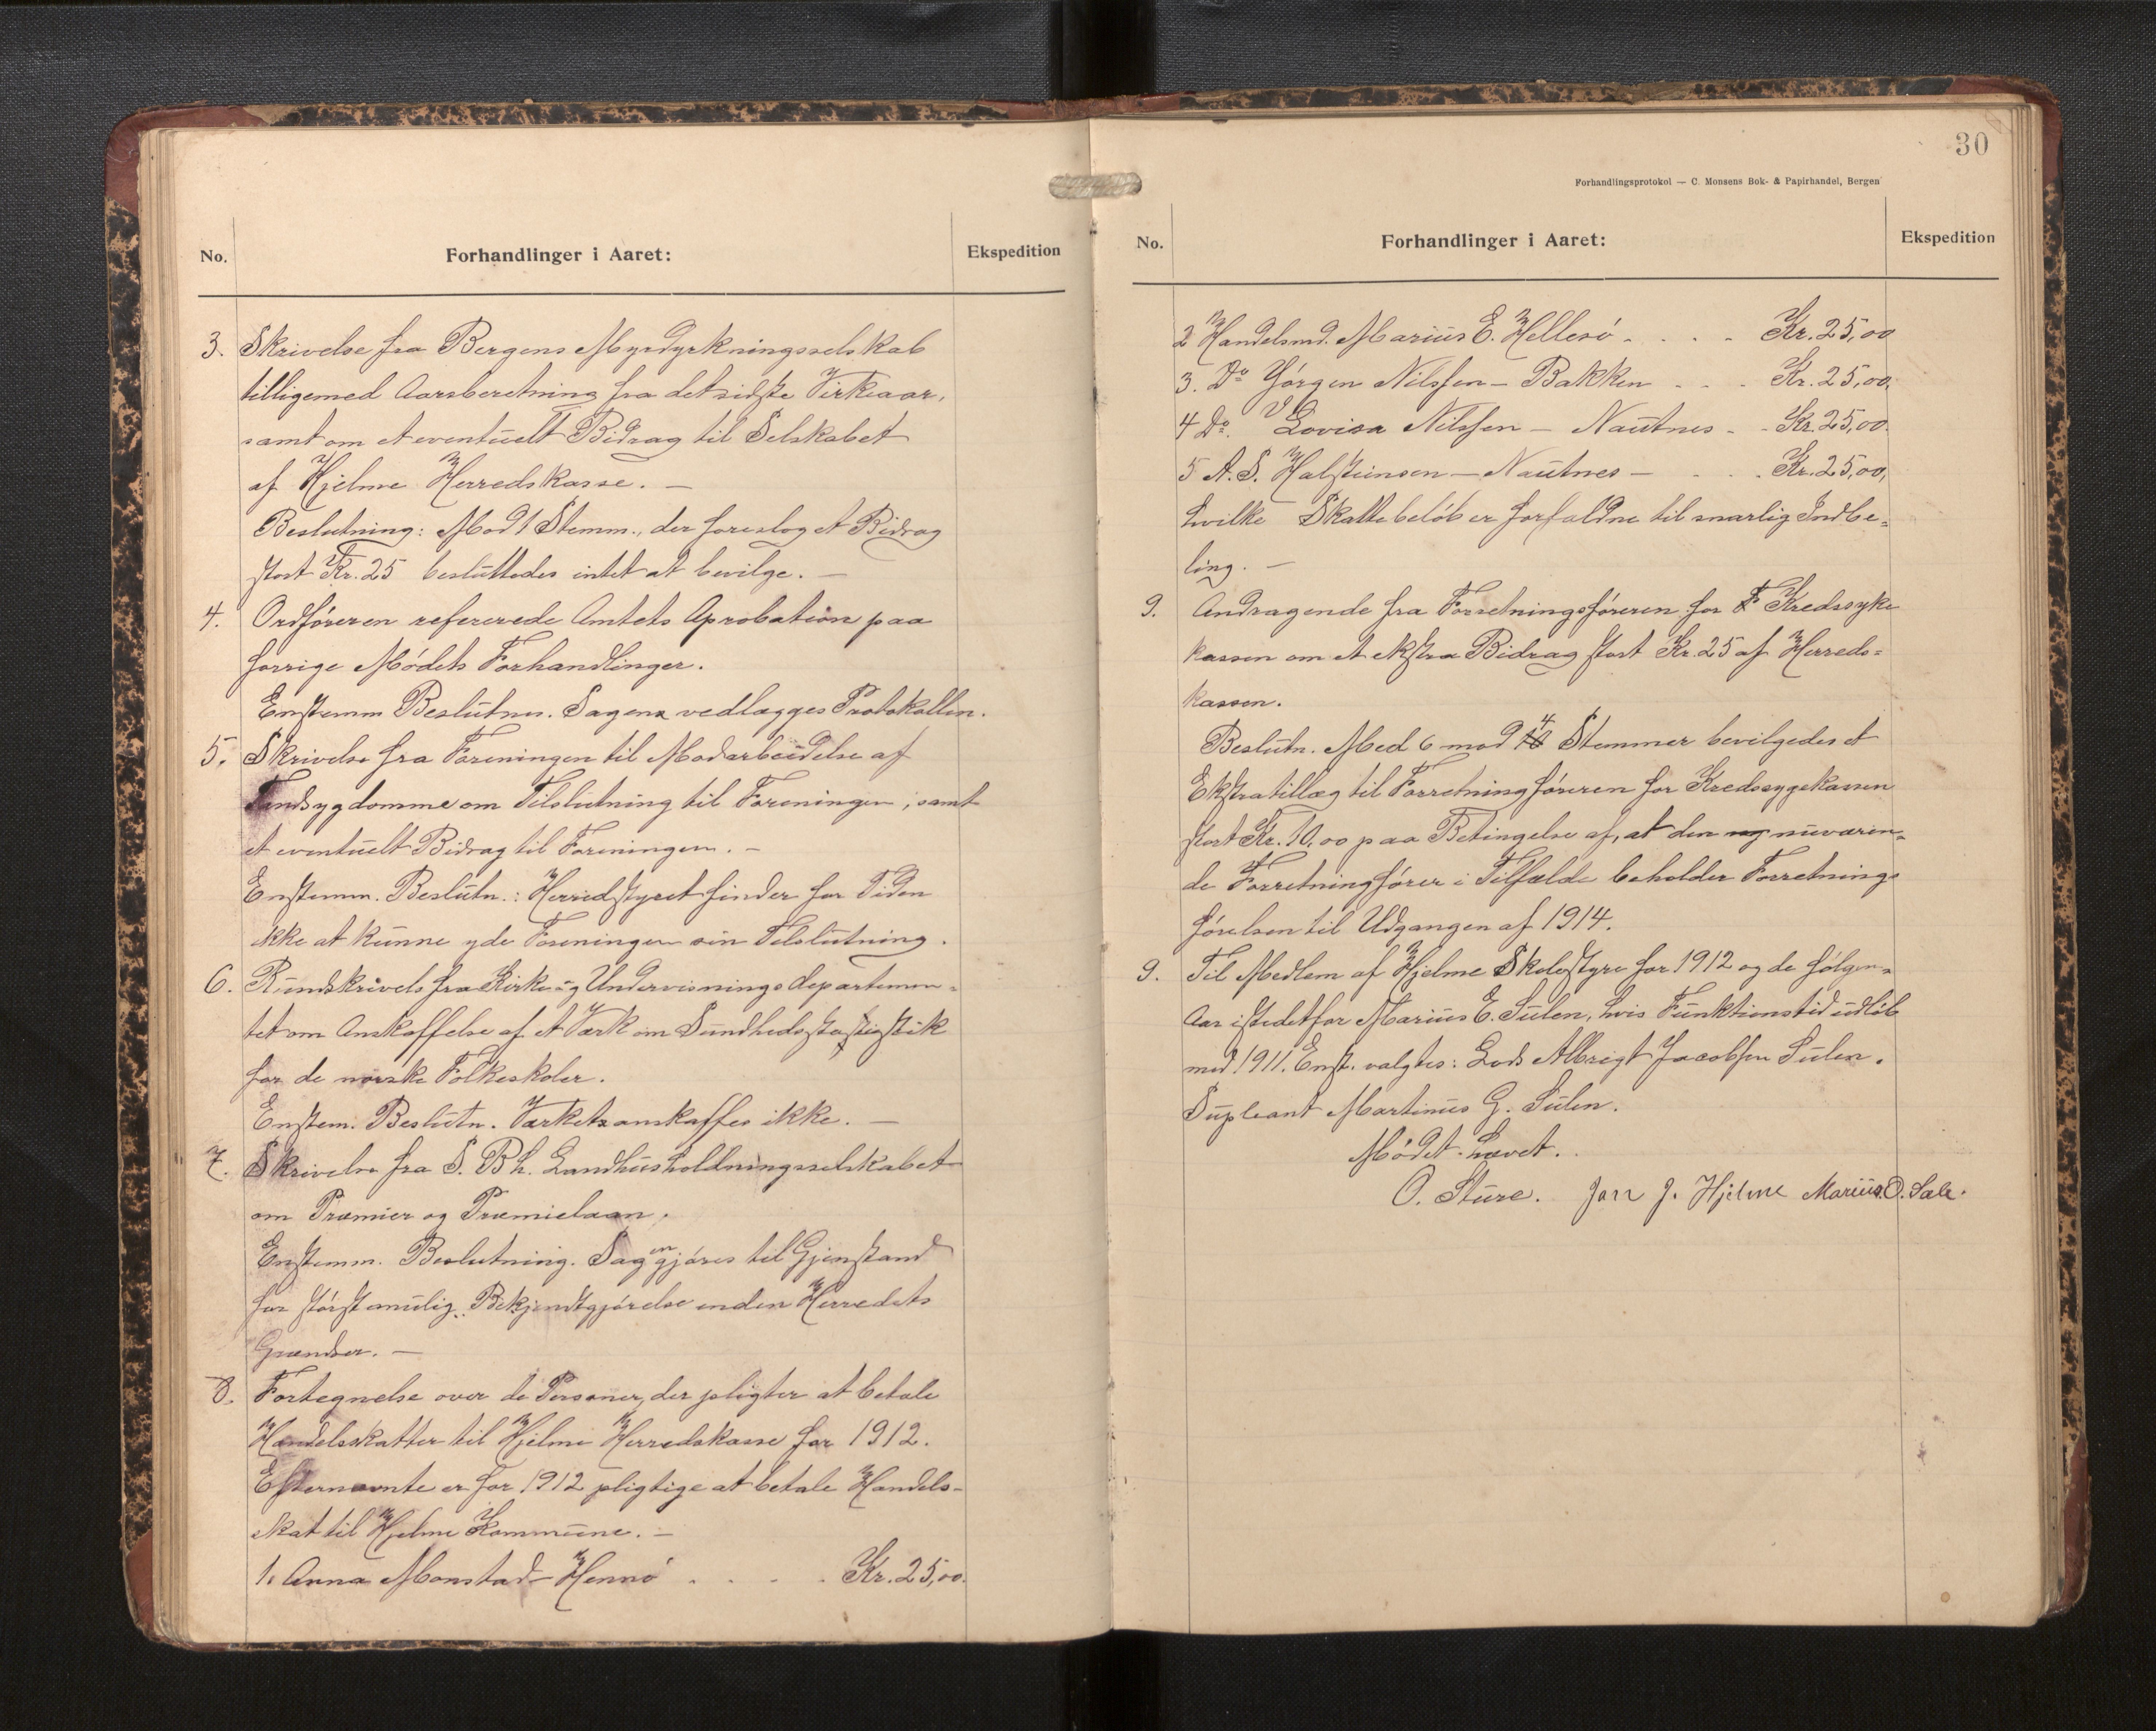 No. Forhandlinger i Aaret: Ekspedition
3. Skrivelse fra Bergens Myrdyrkningsselskab
tilligemed Aarsberetning fra det sidste Virkeaar,
samt om et eventuelt Bidrag til Selskabet
af Hjelme Herredskasse. —
Beslutning: Mod 1 Stemm., der foreslog et Bidrag
stort Kr. 25 besluttedes intet at bevilge. —
4. Ordføreren refererede Amtets Aprobation paa
forrige Mødets Forhandlinger.
Enstemm Beslutnn. Sagen vedlægges Protokollen.
5. Skrivelse fra Foreningen til Modarbeidelse af
Tandsygdomme om Tilslutning til Foreningen, samt
et eventuelt Bidrag til Foreningen. —
Enstemm. Beslutn.: Herredstyret finder for Tiden
ikke at kunne yde Foreningen sin Tilslutning.
6. Rundskrivels fra Kirke og Undervisningsdepartemen-
tet om Anskaffelse af et Værk om Sundhedsstatistik
for de norske Folkeskoler.
Enstem. Beslutn. Værket anskaffes ikke. —
7. Skrivelse fra S. Bh. Landhusholdningsselskabet
om Præmier og Præmielaan.
Enstemm. Beslutning. Sagen gjøres til Gjenstand
for størst mulig Bekjendtgjørelse inden Herredets
Grændser. —
8. Fortegnelse over de Personer, der pligter at betale
Handelsskatter til Hjelme Herredskasse for 1912.
Efternævnte er for 1912 pligtige at betale Handels-
skat til Hjelme Kommune. —
1. Anna Monstad - Hernø . . . . Kr. 25,00.
30
Forhandlingsprotokol — C. Monsens Bok- & Papirhandel, Bergen
No. Forhandlinger i Aaret: Ekspedition
2 Handelsmd. Marius E. Hellesø . . . . Kr. 25,00
3. Do Jørgen Nilssen — Bakken . . . Kr. 25,00.
4 Do. Lovisa Nilssen — Nautnes - . Kr. 25,00.
5 A. S. Halsteinsen — Nautnes — . . . Kr. 25,00,
hvilke Skattebeløb er forfaldne til snarlig Indbe-
ling. —
9. Andragende fra Forretningsføreren for Kredssyke
kassen om et ekstra Bidrag stort Kr. 25 af Herreds-
kassen.
Beslutn. Med 6 mod 4 Stemmer bevilgedes et
Ekstratillæg til Forretningføreren for Kredssygekassen
stort Kr. 10,00 paa Betingelse af, at den nuværen-
de Forretningfører i Tilfælde beholder Forretnings
førelsen til Udgangen af 1914.
9. Til Medlem af Hjelme Skolestyre for 1912 og de følgen-
Aar istedetfor Marius E. Sulen, hvis Funktionstid udløb
med 1911. Enst. valgtes: Lods Albrigt Jacobsen Sulen.
Supleant Martinus G. Sulen.
Mødet hævet.
O. Sture. Jan J. Hjelme Marius O. Sæle.